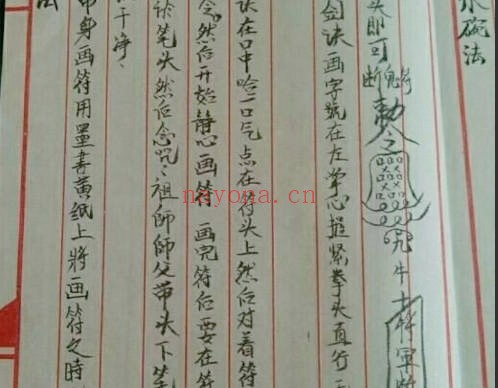 水碗法
头即可断鬼符
敕令
牛
将軍
剑诀画字號在左掌心捏紧拳头直行
诀在口中哈一口气点在符头上然后对着符
念。然后开始静心画符画完符后要在符
诀笔头然后念咒:祖師師父带头下笔
干净
带身画符用墨書黄纸上将画符之時
nayona.cn